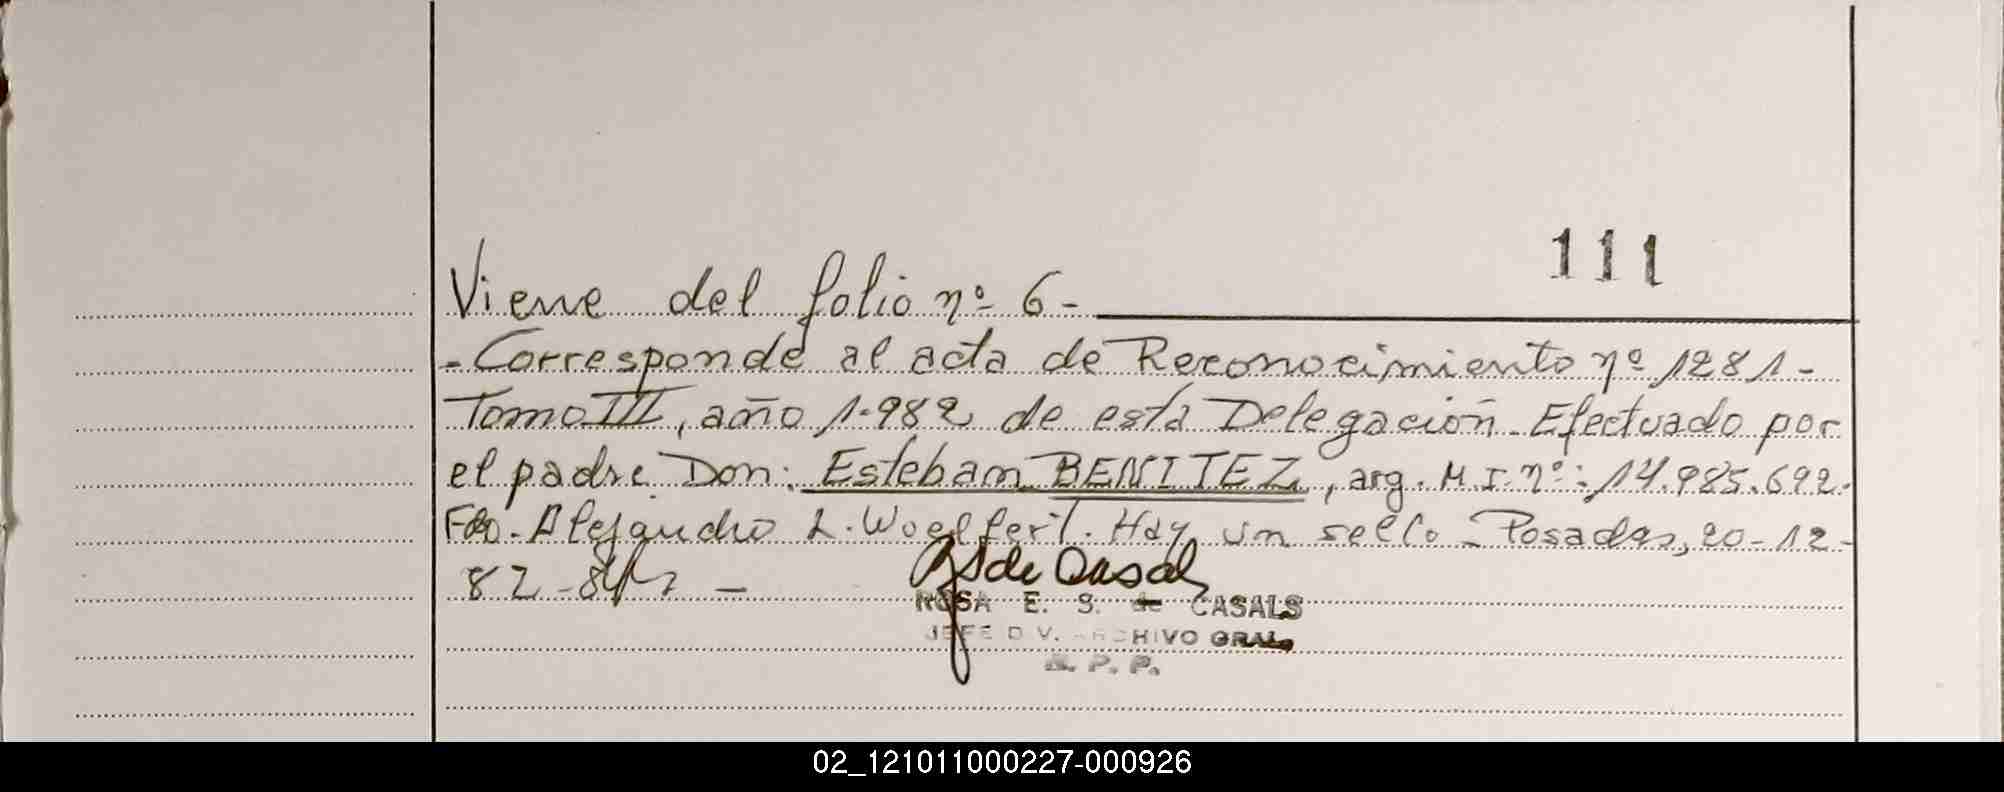 111
Viene del folio nº 6-
- Corresponde al acta de Reconocimiento nº 1281-
Tomo III, año 1.982 de esta Delegación. Efectuado por
el padre Don: Esteban BENITEZ, arg. M.I. nº: 14.985.692.
Fdo. Alejandro L. Woelfert. Hay un sello - Posadas, 20-12-
82-
de Casals
ROSA E. S. de CASALS
JEFE DIV. ARCHIVO GRAL.
R. P. P.
02_121011000227-000926